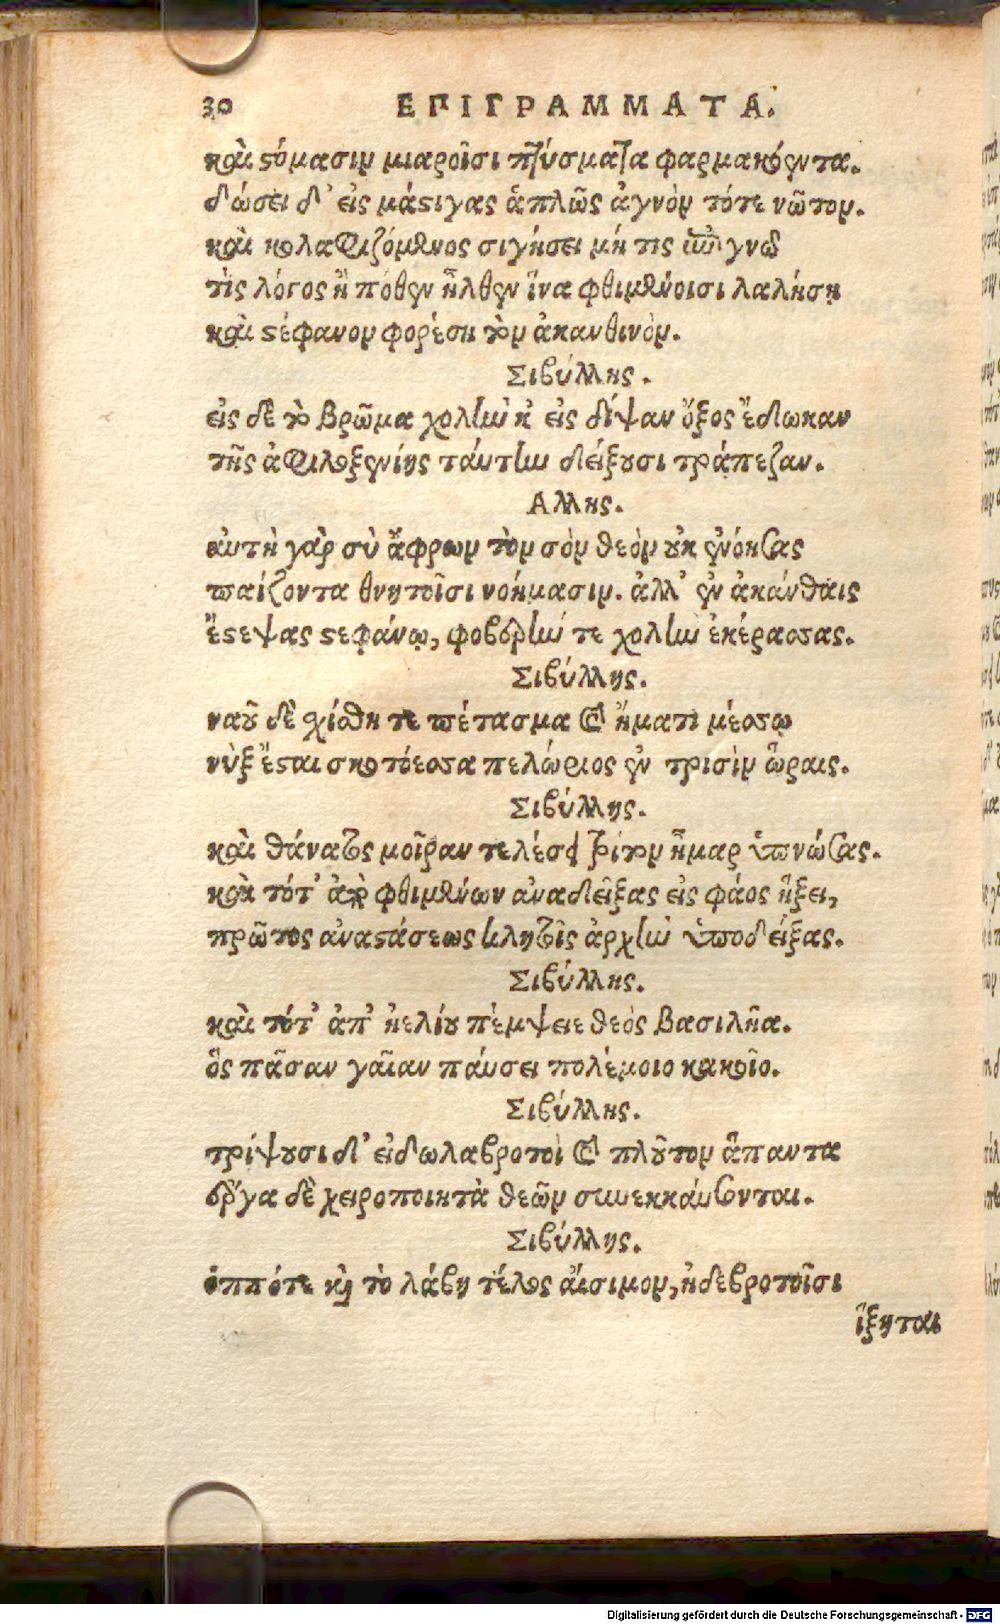 30 ΕΠΙΓΡΑΜΜΑΤΑ.
καὶ στόμασιν μιαροῖσι πτύσματα φαρμακόεντα.
δώσει δ' εἰς μάστιγας ἁπλῶς ἁγνὸν τότε νῶτον.
καὶ κολαφιζόμενος σιγήσει μή τις ἐπιγνῷ
τὶς λόγος ἢ πόθεν ἦλθεν ἵνα φθιμένοισι λαλήσῃ
καὶ στέφανον φορέσῃ τὸν ἀκανθινὸν.
Σιβύλλης.
εἰς δὲ τὸ βρῶμα χολὴν κ' εἰς δίψαν ὄξος ἔδωκαν
τῆς ἀφιλοξενίης ταύτην δείξουσι τράπεζαν.
Αλλης.
αὐτὴ γὰρ σὺ ἄφρων τὸν σὸν θεὸν οὐκ ἐνόησας
παίζοντα θνητοῖσι νοήμασιν. ἀλλ' ἐν ἀκάνθαις
ἔστεψας στεφάνῳ, φοβερὴν τε χολὴν ἐκέρασσας.
Σιβύλλης.
ναοῦ δὲ σχίσθη τε πέτασμα καὶ ἤματι μέσσῳ
νὺξ ἔσται σκοτόεσσα πελώριος ἐν τρισὶν ὥραις.
Σιβύλλης.
καὶ θάνατος μοῖραν τελέσει τρίτον ἦμαρ ὑπνώσας.
καὶ τότ' ἀπὸ φθιμένων ἀναδείξας εἰς φάος ἥξει,
πρῶτος ἀναστάσεως κλητοῖς ἀρχὴν ὑποδείξας.
Σιβύλλης.
καὶ τότ' ἀπ' ἠελίου πέμψειε θεὸς βασιλῆα.
ὃς πᾶσαν γαῖαν παύσει πολέμοιο κακοῖο.
Σιβύλλης.
τρίψουσι δ' εἰδωλα βροτοὶ καὶ πλοῦτον ἅπαντα
ἔργα δὲ χειροποιητὰ θεῶν συνεκκαύσονται.
Σιβύλλης.
ὁππότε καὶ τὸ λάβῃ τέλος αἴσιμον, ἠδε βροτοῖσι
ἵξηται
Digitalisierung gefördert durch die Deutsche Forschungsgemeinschaft - DFG